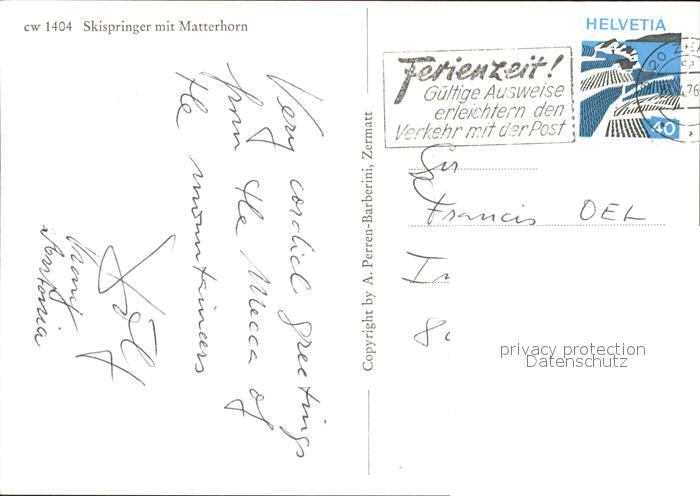 cw 1404 Skispringer mit Matterhorn
Very cordial greetings
from the Mecca of
the mountaineers
and
Antonia
Copyright by A. Perren-Barberini, Zermatt
Ferienzeit!
Gültige Ausweise
erleichtern den
Verkehr mit der Post
HELVETIA
40
20 ZE
76
Francis OEL
privacy protection
Datenschutz